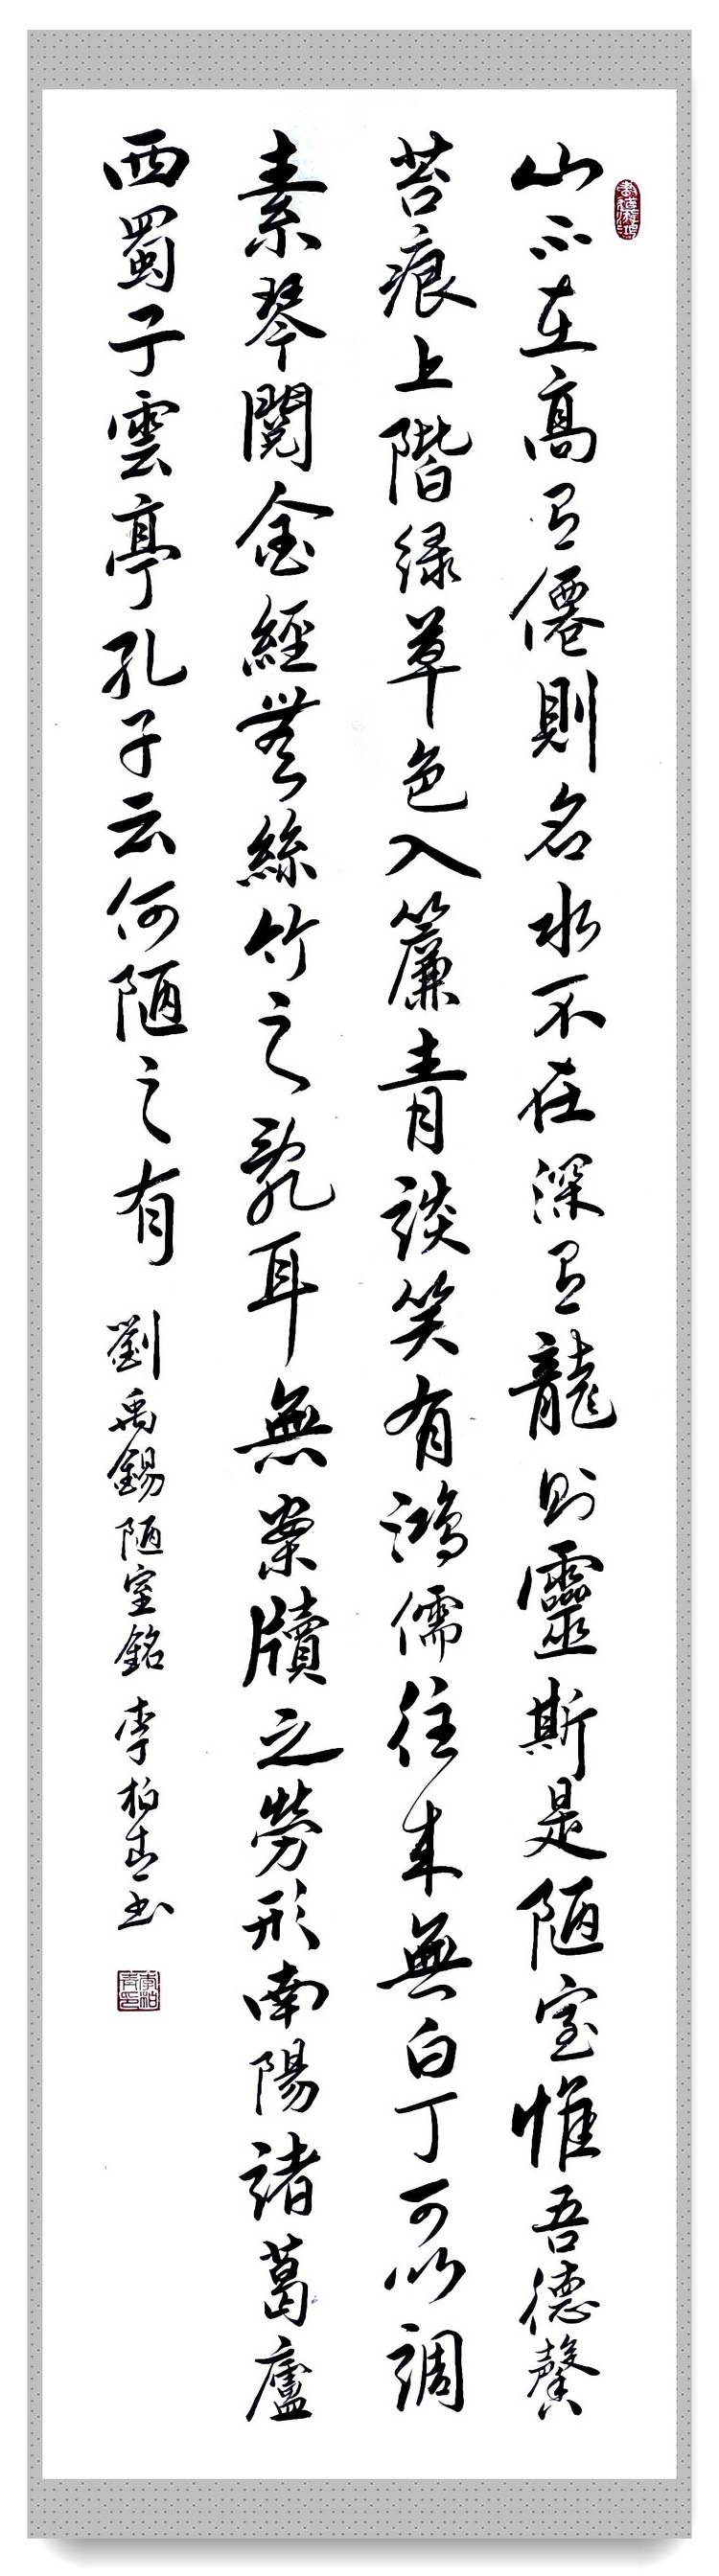 山不在高有僊則名水不在深有龍則靈斯是陋室惟吾德馨
苔痕上階緑草色入簾青談笑有鴻儒往来無白丁可以調
素琴閱金經無絲竹之亂耳無案牘之勞形南陽諸葛廬
西蜀子雲亭孔子云何陋之有
劉禹錫陋室銘李柏青书
李柏青印